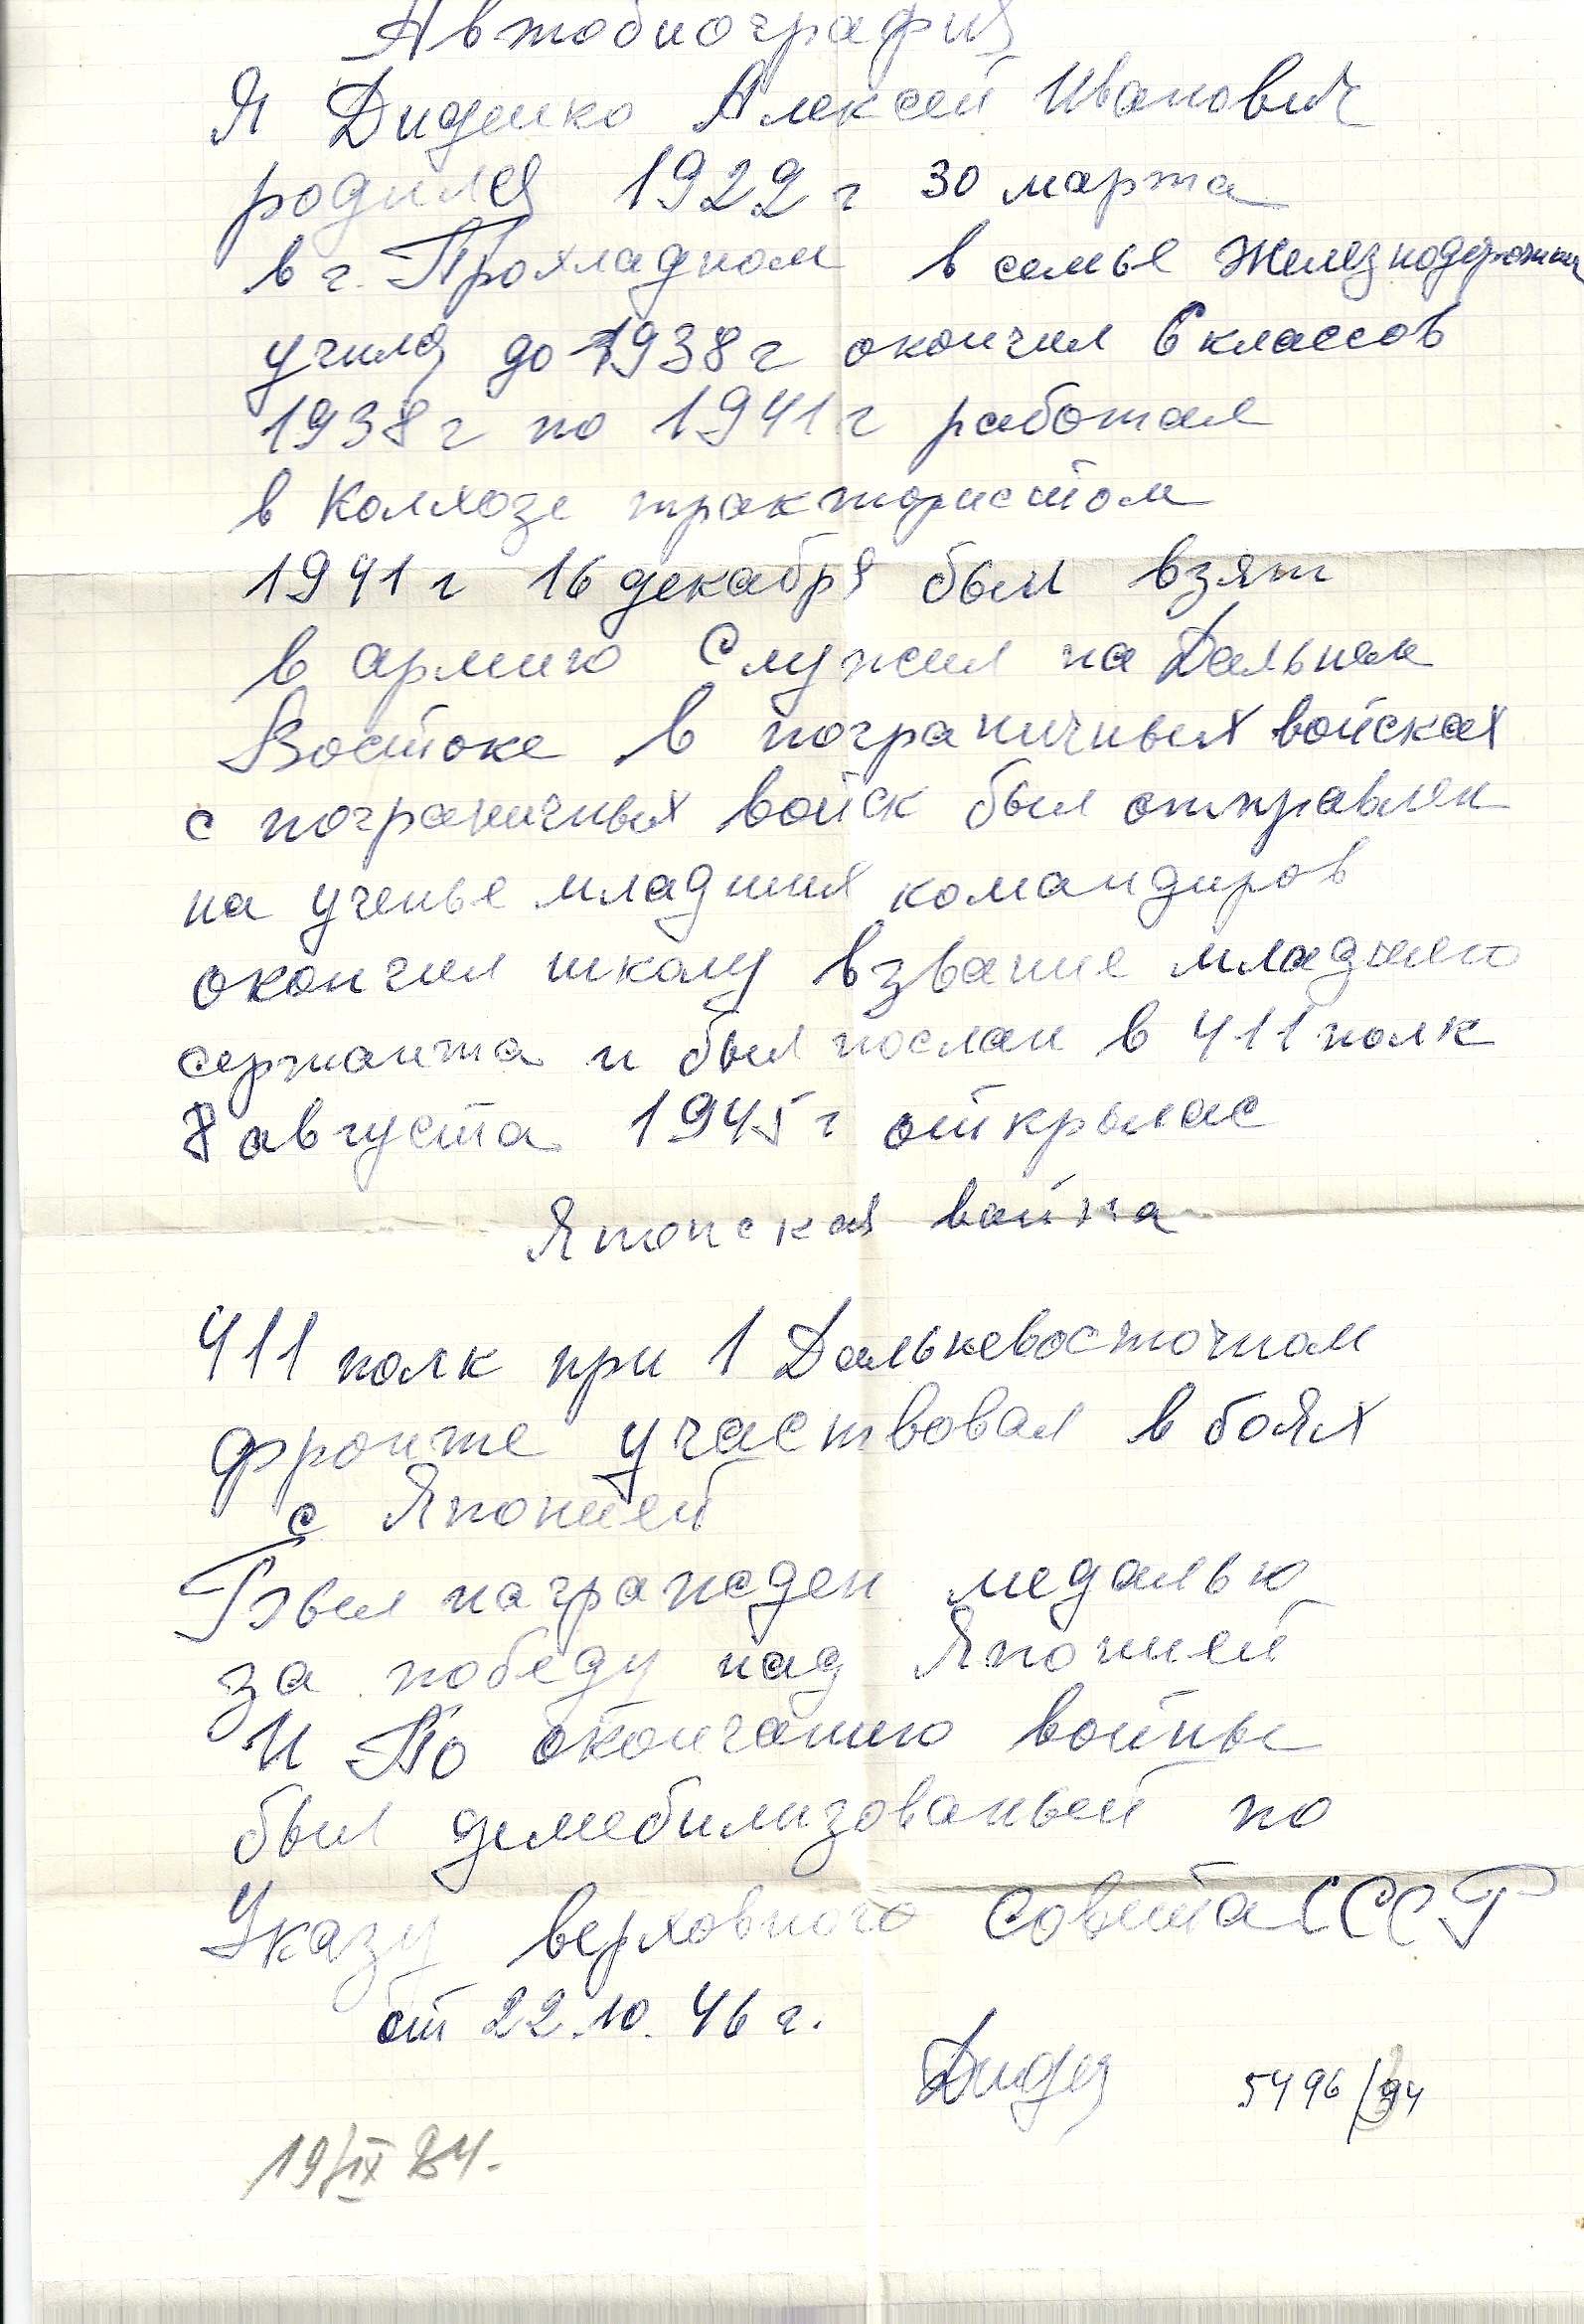 Автобиография
Я Диденко Алексей Иванович
родился 1922 г 30 марта
в г. Прохладном в семье Железнодорожник
учился до 1938 г окончил 6 классов
1938 г по 1941 г работал
в Колхозе трактористом
1941 г 16 декабря был взят
в армию Служил на Дальнем
Востоке в пограничных войсках
с пограничных войск был отправлен
на ученье младших командиров
окончил школу взвание младшего
сержанта и был послан в 411 полк
8 августа 1945 г открылас
Японская война
411 полк при 1 Дальневосточном
фронте участвовал в боях
с Японией
Был награжден медалью
за победу над Японией
И По окончанию войны
был демобилизованый по
Указу верховного Совета СССР
от 22.10.46 г.
Диде 5496/94
19/IX 84.